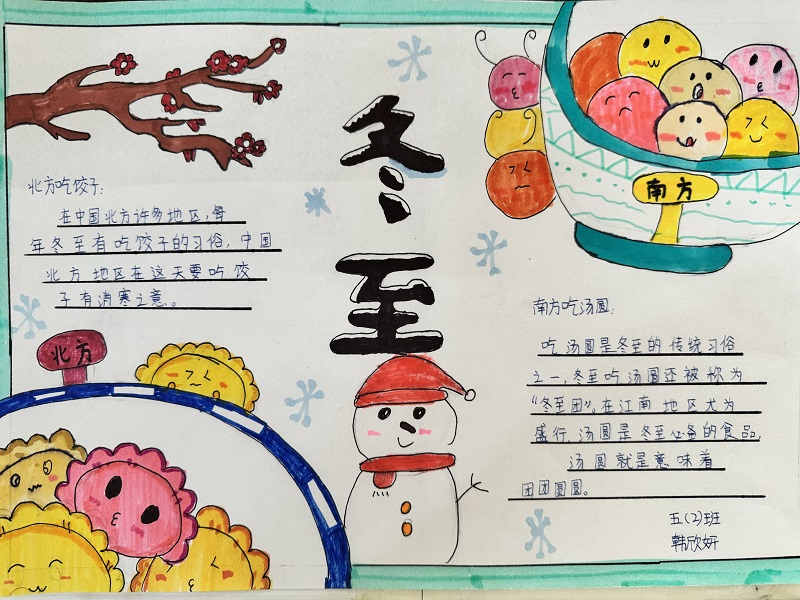 冬至
北方吃饺子:
在中国北方许多地区,每
年冬至有吃饺子的习俗,中国
北方地区在这天要吃饺
子有消寒之意。
北方
南方
南方吃汤圆:
吃汤圆是冬至的传统习俗
之一,冬至吃汤圆还被称为
“冬至团”。在江南地区尤为
盛行,汤圆是冬至必备的食品,
汤圆就是意味着
团团圆圆。
五(2)班
韩欣妍